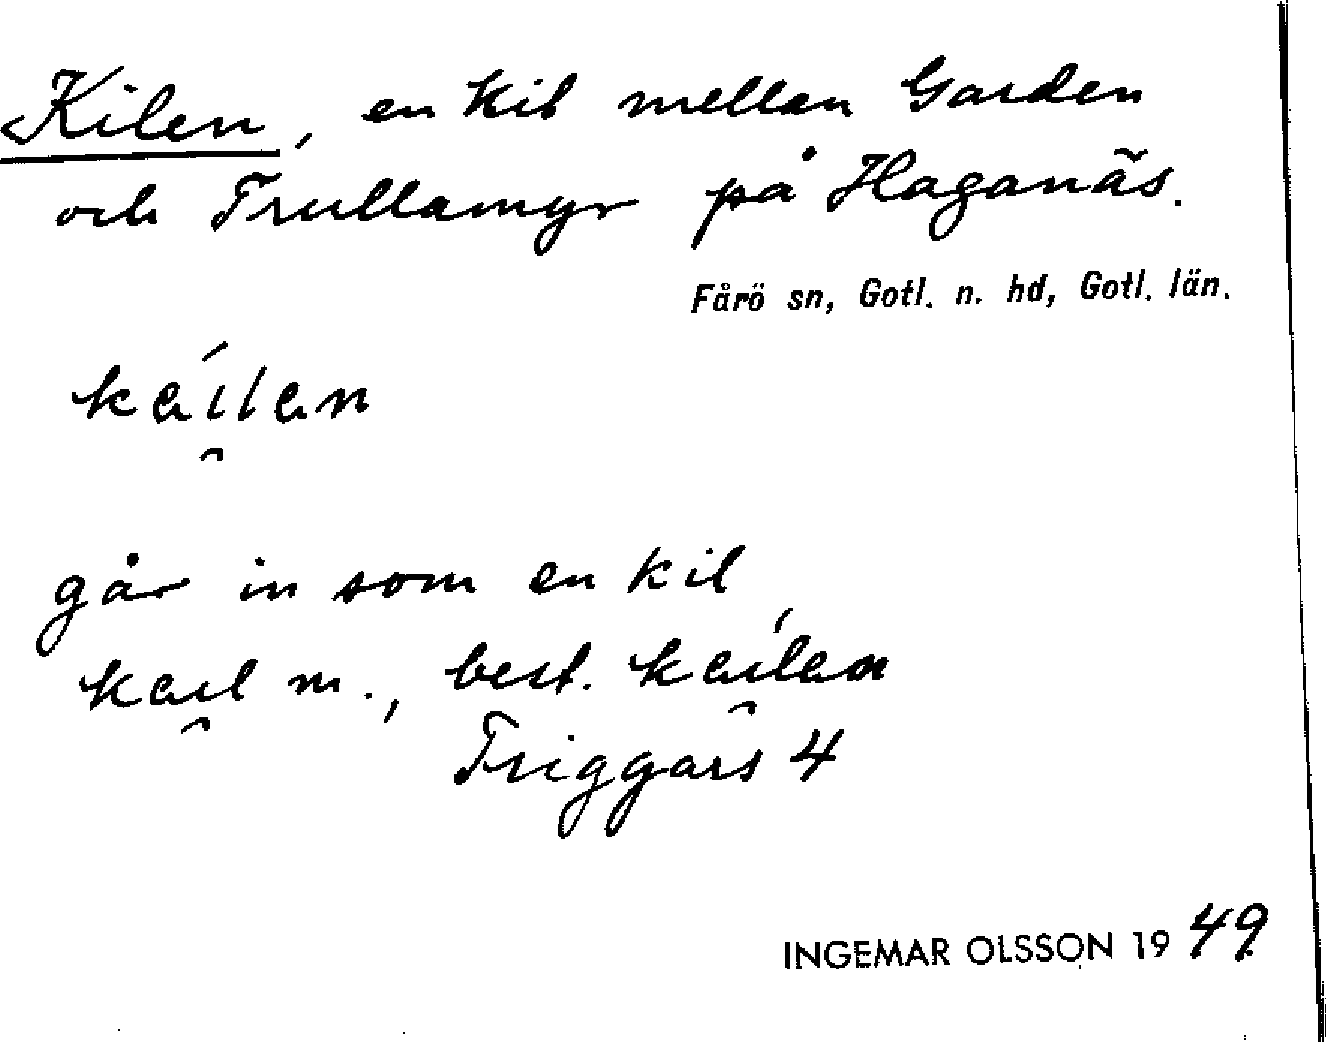 Kilen, en kil mellan Garden
och Trullamyr på Haganäs.
Fårö sn, Gotl. n. hd, Gotl. län.
kailan
går in som en kil
kail m., best. kailan
Triggars 4
INGEMAR OLSSON 1949